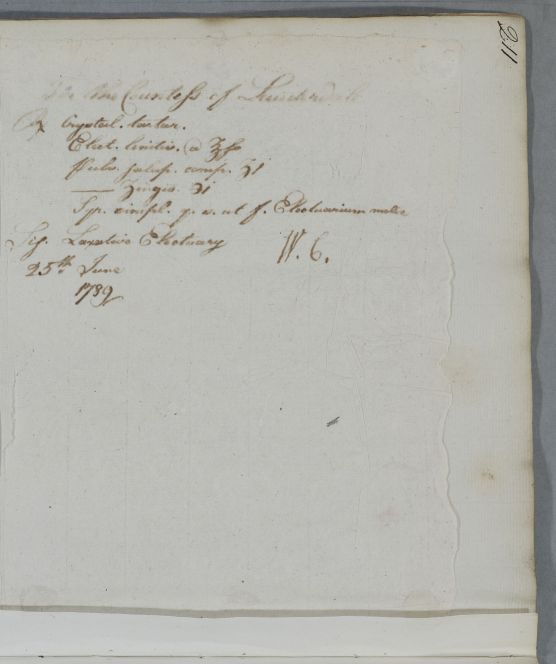 211
The Countess of Lauderdale
℞ Crystal. tartar.
Elect. lenitiv. a ℥ſs
Pulv. jalap. comp. ʒi
—— Zingib. ʒi
Syr. simpl. q. s. ut f. Electuarium molle
Sig. Laxative Electuary W. C.
25th June
1789